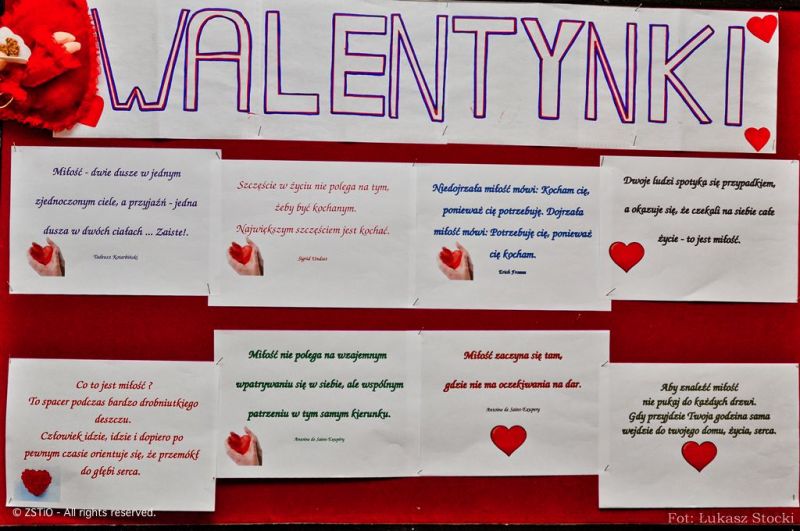 WALENTYNKI
Miłość - dwie dusze w jednym
zjednoczonym ciele, a przyjaźń - jedna
dusza w dwóch ciałach ... Zaiste!.
Tadeusz Kotarbiński
Szczęście w życiu nie polega na tym,
żeby być kochanym.
Największym szczęściem jest kochać.
Sigrid Undset
Niedojrzała miłość mówi: Kocham cię,
ponieważ cię potrzebuję. Dojrzała
miłość mówi: Potrzebuję cię, ponieważ
cię kocham.
Erich Fromm
Dwoje ludzi spotyka się przypadkiem,
a okazuje się, że czekali na siebie całe
życie - to jest miłość.
Co to jest miłość ?
To spacer podczas bardzo drobniutkiego
deszczu.
Człowiek idzie, idzie i dopiero po
pewnym czasie orientuje się, że przemókł
do głębi serca.
Miłość nie polega na wzajemnym
wpatrywaniu się w siebie, ale wspólnym
patrzeniu w tym samym kierunku.
Antoine de Saint-Exupéry
Miłość zaczyna się tam,
gdzie nie ma oczekiwania na dar.
Antoine de Saint-Exupéry
Aby znaleźć miłość
nie pukaj do każdych drzwi.
Gdy przyjdzie Twoja godzina sama
wejdzie do twojego domu, życia, serca.
© ZSTiO - All rights reserved.
Fot: Łukasz Stocki